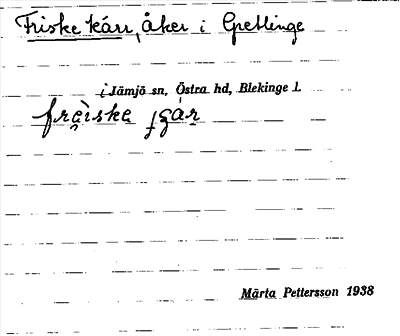 Friske kärr, åker i Gretlinge
i Jämjö sn, Östra hd, Blekinge l.
Märta Pettersson 1938